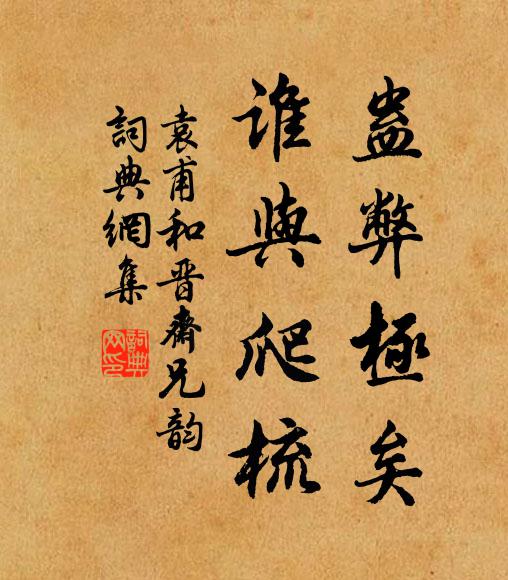 蠱弊極矣
誰與爬梳
袁甫和晋齋兄韵
詞典網集
詞典
网印